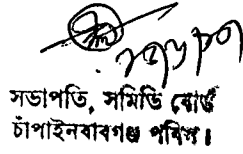 সভাপতি, সমিতি বোর্ড
চাঁপাইনবাবগঞ্জ পবিস।